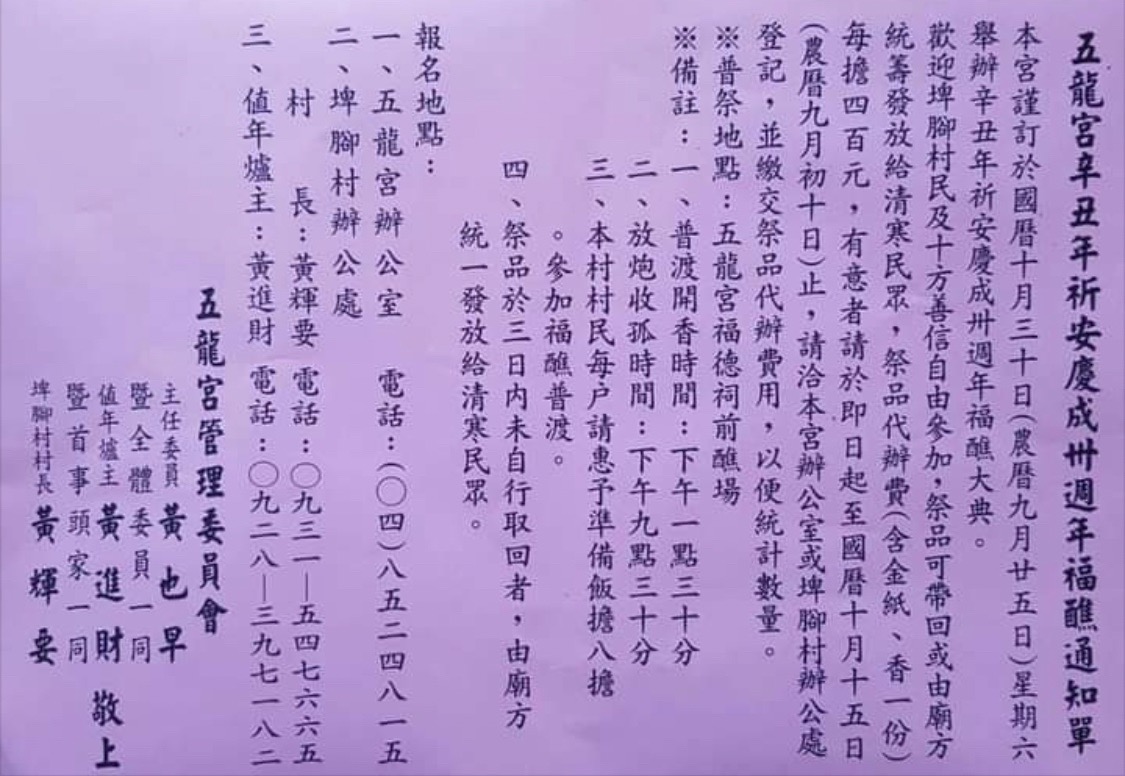 五龍宮辛丑年祈安慶成卅週年福醮通知單
本宮謹訂於國曆十月三十日(農曆九月廿五日)星期六
舉辦辛丑年祈安慶成卅週年福醮大典。
歡迎埤腳村民及十方善信自由參加,祭品可帶回或由廟方
統籌發放給清寒民眾,祭品代辦費(含金紙、香一份)
每擔四百元,有意者請於即日起至國曆十月十五日
(農曆九月初十日)止,請洽本宮辦公室或埤腳村辦公處
登記,並繳交祭品代辦費用,以便統計數量。
※普祭地點:五龍宮福德祠前醮場
※備註:一、普渡開香時間:下午一點三十分
二、放炮收孤時間:下午九點三十分
三、本村村民每户請惠予準備飯擔八擔
。參加福醮普渡。
四、祭品於三日內未自行取回者,由廟方
統一發放給清寒民眾。
報名地點:
一、五龍宮辦公室 電話:(〇四)八五二四八一五
二、埤腳村辦公處
村 長:黃輝要 電話:〇九三一—五四七六六五
三、值年爐主:黃進財 電話:〇九二八—三九七一八二
五龍宮管理委員會
主任委員 黃也早
暨全體委員一同
值年爐主 黃進財 敬上
暨首事頭家一同
埤腳村村長 黃輝要